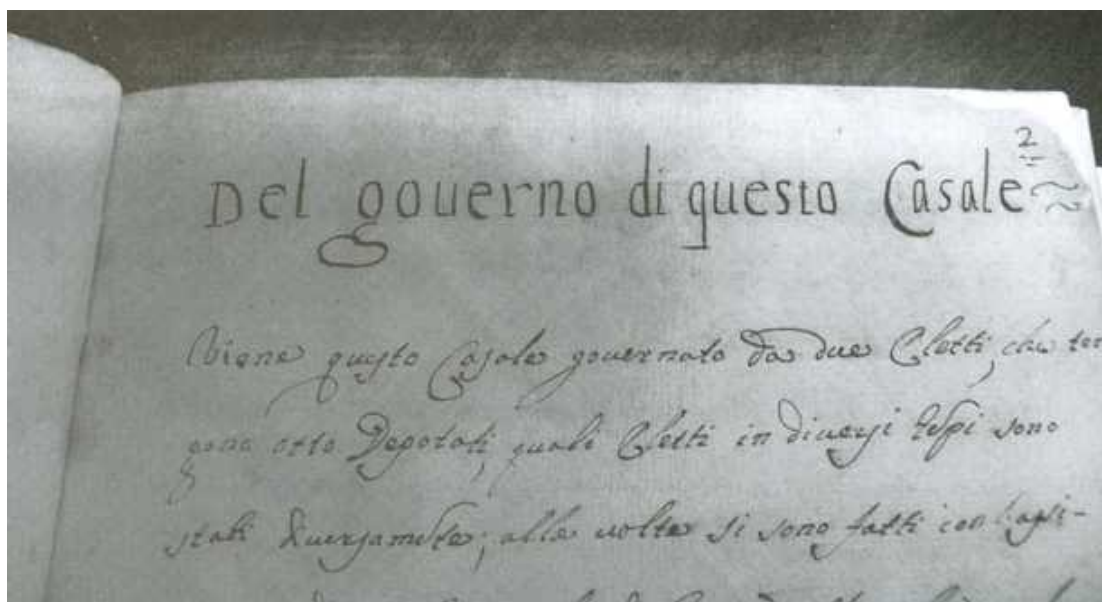 2
Del gouerno di questo Casale
Viene questo Casale gouernato da due Eletti, che ten
gono otto Deputati, quali Eletti in diuersi sono
stati diuersamente; alle uolte si sono fatti con